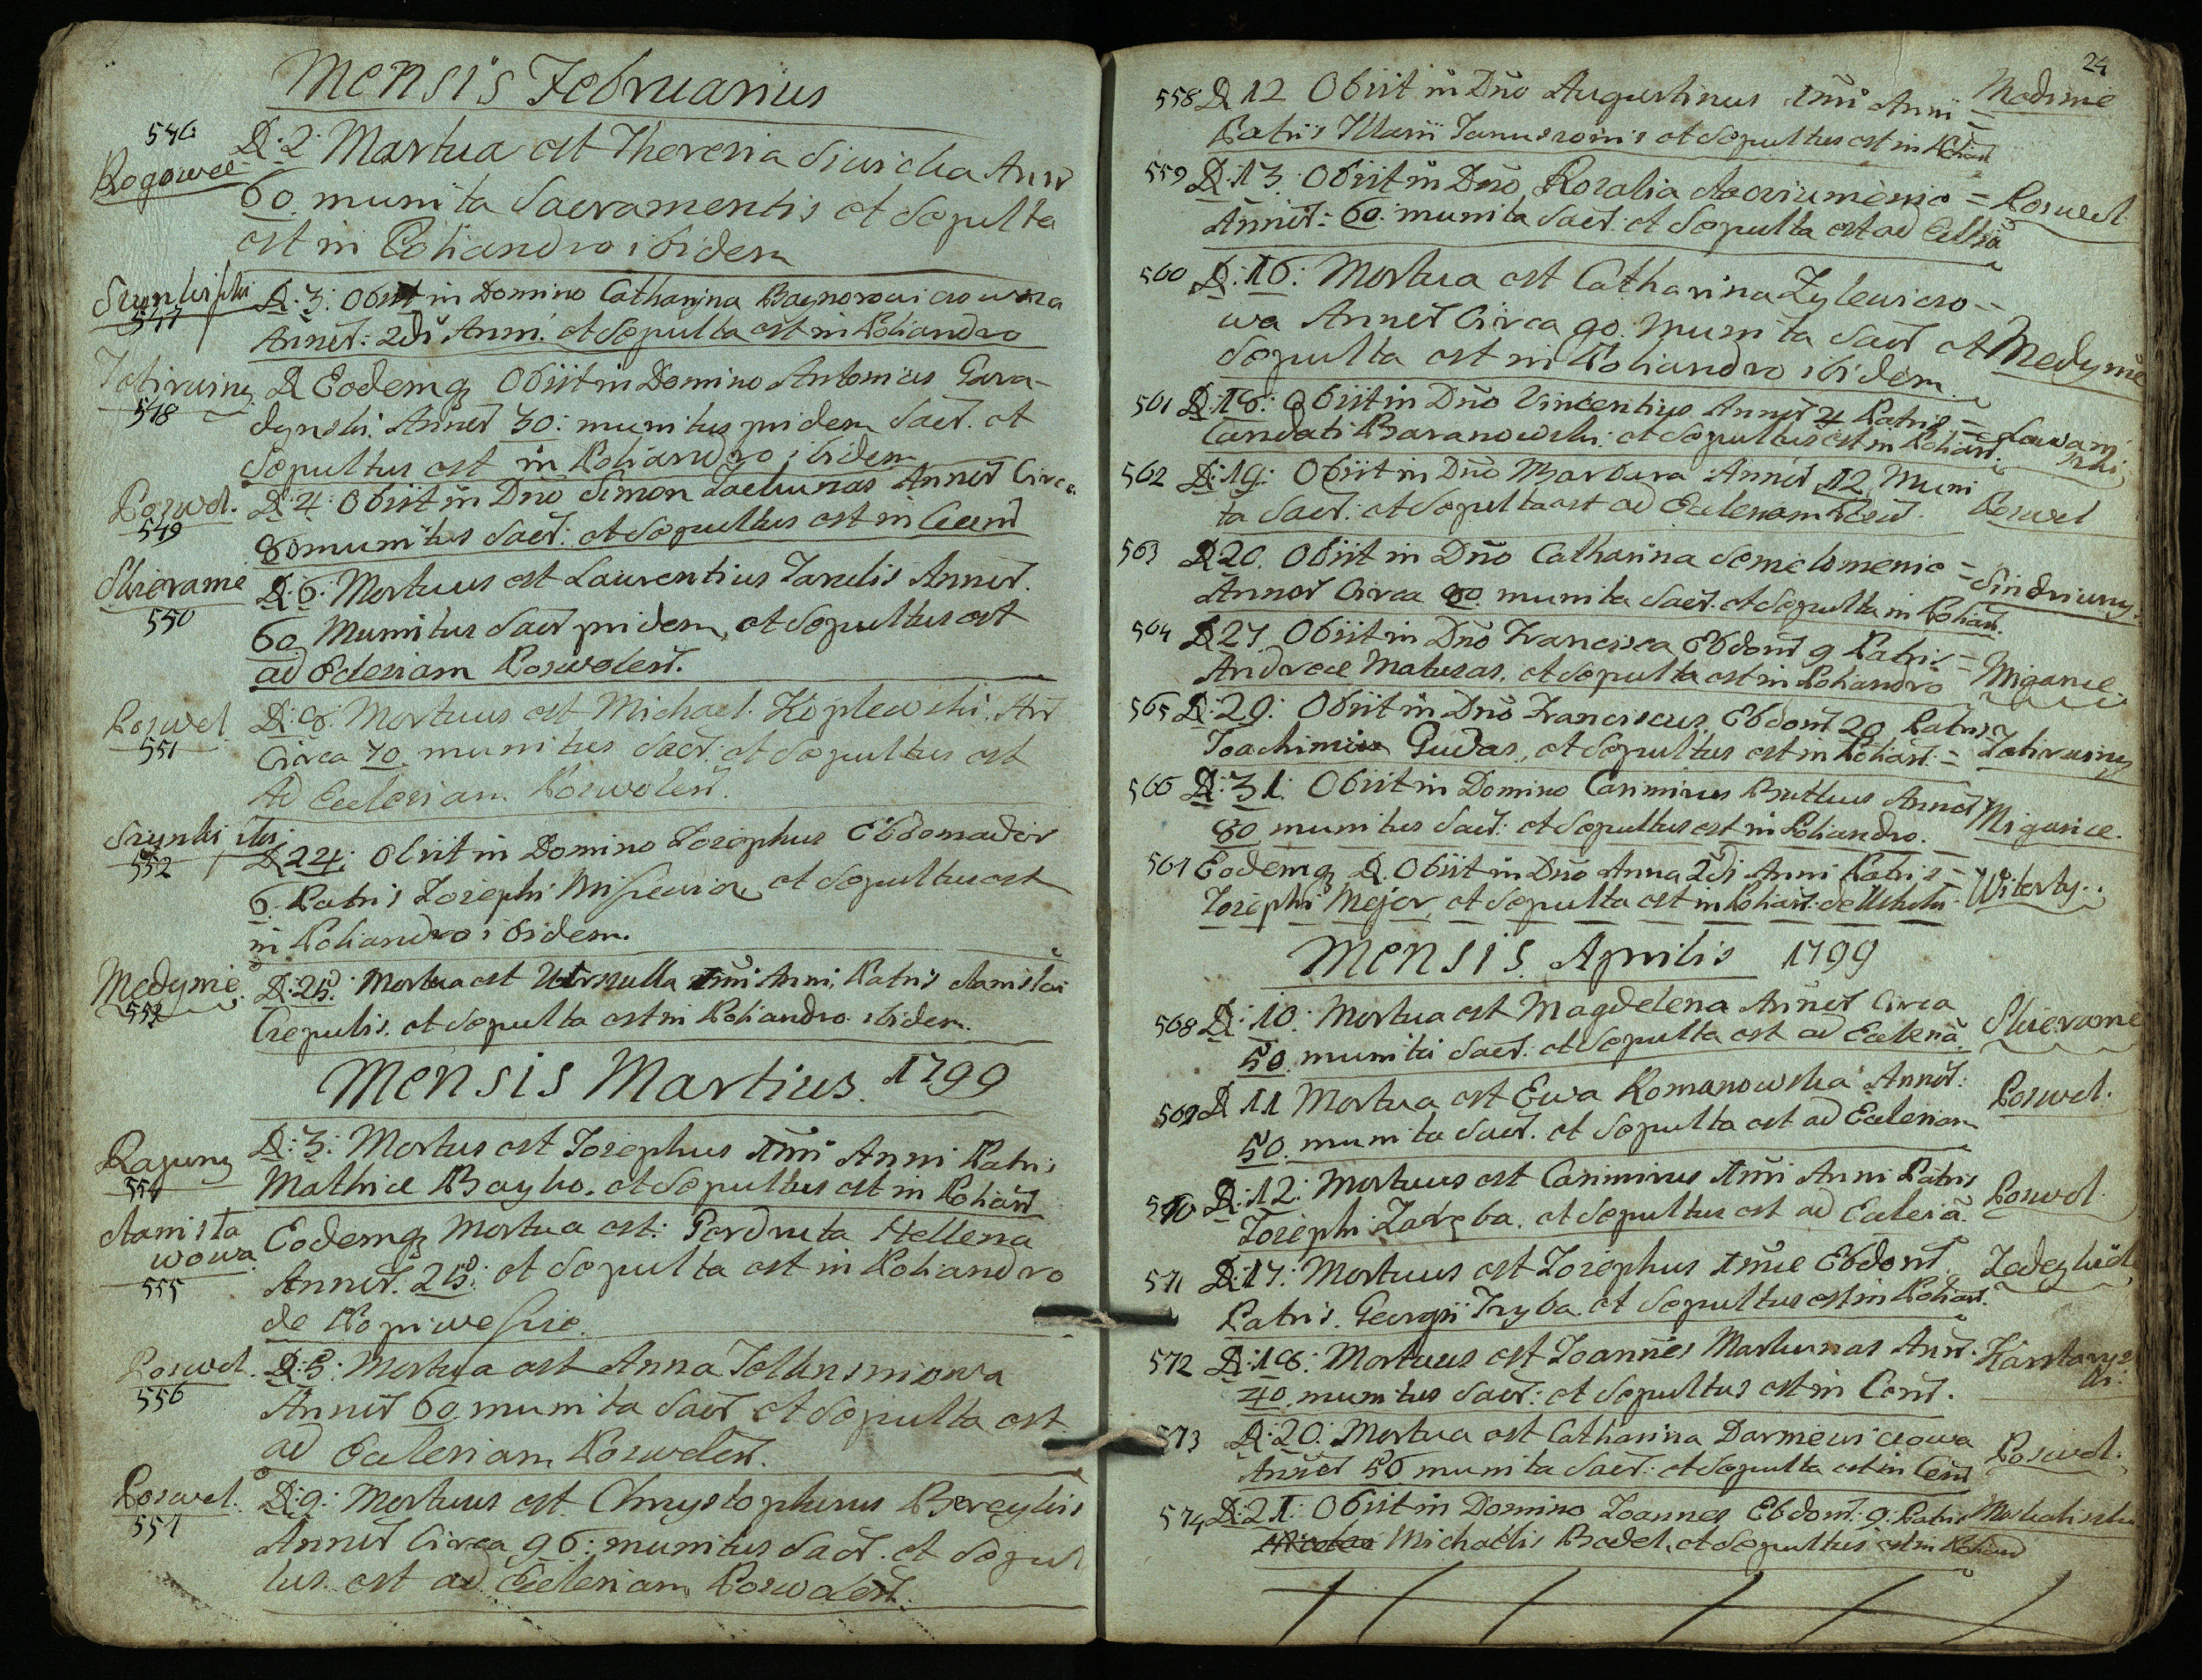 Mensis Februarius
546
Rogowce
D: 2. Mortua est Theresia Annr
60. munita Sacramentis et Sepulta
est in Poliandro ibidem
547
D: 3: Obiit in Domino Catharina
Annor: 2di Anni. et Sepulta est in Poliandro
548
D Eodemq Obiit in Domino Antonius Gara-
dynski. Annor 30: munitus pridem Sacr. et
Sepultus est in Poliandro ibidem
Poswol.
549
D: 4: Obiit in Dno Simon Annor Circa
80 munitus Sacr: et Sepultus est in Caem
550
D: 6: Mortuus est Laurentius Annor.
60 Munitus Sacr pridem, et Sepultus est
ad Eclesiam Poswolens.
Poswol
551
D: 8: Mortuus est Michael Koplewski. An
Circa 70. munitus Sacr: et Sepultus est
Ad Ecclesiam Poswolens.
552
D 24: Obiit in Domino Josephus Ebdomador
6. Patris Josephi et Sepultus est
in Poliandro ibidem.
Medynie
553
D: 25. Mortua est Urszulla 1mi Anni, Patris Stanislai
Czepulis. et Sepulta est in Poliandro ibidem.
Mensis Martius. 1799
554
D: 3: Mortus est Josephus 1mi Anni Patris
Mathiae Bayko. et Sepultus est in Polian
Stanisla
wowa
555
Eodemq Mortua est: Perdruta Hellena
Annor. 25: et Sepulta est in Poliandro
de
Poswol.
556
D: 5: Mortua est Anna
Annor 60 munita Sacr et Sepulta est
ad Ecclesiam Poswolens.
Poswol.
557
D: 9: Mortuus est Chrystopherus
Annor Circa 96: munitus Sacr. et Sepul
tus est ad Ecclesiam Poswolens.
24
558 D 12 Obiit in Dno Augustinus 1mi Anni = Medinie
Patris Illarii et Sepultus est in Polian
559 D: 13: Obiit in Dno Rozalia = Poswol.
Annor: 60: munita Sacr: et Sepulta est ad Ecllia
560 D: 16: Mortua est Catharina Zylewiczo-
wa Annor Circa 90. munita Sacr et Medynie
Sepulta est in Poliandro ibidem
561 D: 18: Obiit in Dno Vincentius Annor 4 Patris =
Candati Baranowski. et Sepultus est in Polian.
562 D: 19: Obiit in Dno Barbara Annor 12 Muni
ta Sacr: et Sepulta est ad Ecclesiam Posw. Poswol
563 D 20. Obiit in Dno Catharina =
Annor Circa 80. munita Sacr. et Sepulta in Polian.
564 D 27. Obiit in Dno Francisca Ebdom 9 Patris = Migance.
Andreae Matusas. et Sepulta est in Poliandro
565 D: 29: Obiit in Dno Franciscus Ebdom 20 Patris
Joachimi Gudas, et Sepultus est in Polian: =
566 D: 31: Obiit in Domino Casimirus Butkus Annor Migance.
80 munitus Sacr: et Sepultus est in Poliandro.
567 Eodemq D. Obiit in Dno Anna 2di Anni Patris = Witorty.
Josephi Mejer, et Sepulta est in Polian:
Mensis Aprilis 1799
568 D: 10: Mortua est Magdelena Annor Circa
50 munita Sacr. et Sepulta est ad Ecclesia
569 D 11 Mortua est Ewa Romanowska Annor: Poswol.
50. munita Sacr. et Sepulta est ad Ecclesiam
570 D: 12: Mortuus est Casimirus 1mi Anni Patris Poswol
Josephi Zaręba. et Sepultus est ad Eclesia.
571 D: 17: Mortuus est Josephus 1mae Ebdom.
Patris. Georgii Tryba. et Sepultus est in Polian.
572 D: 18: Mortuus est Joannes Martunas Ann.
40. munitus Sacr: et Sepultus est in Cem.
573 D: 20. Mortua est Catharina Darmewiczowa Poswol.
Annor 56 munita Sacr: et Sepulta est in Cem
574 D: 21: Obiit in Domino Joannes Ebdom: 9: Patris
Michaelis Badel, et Sepultus est in Polian